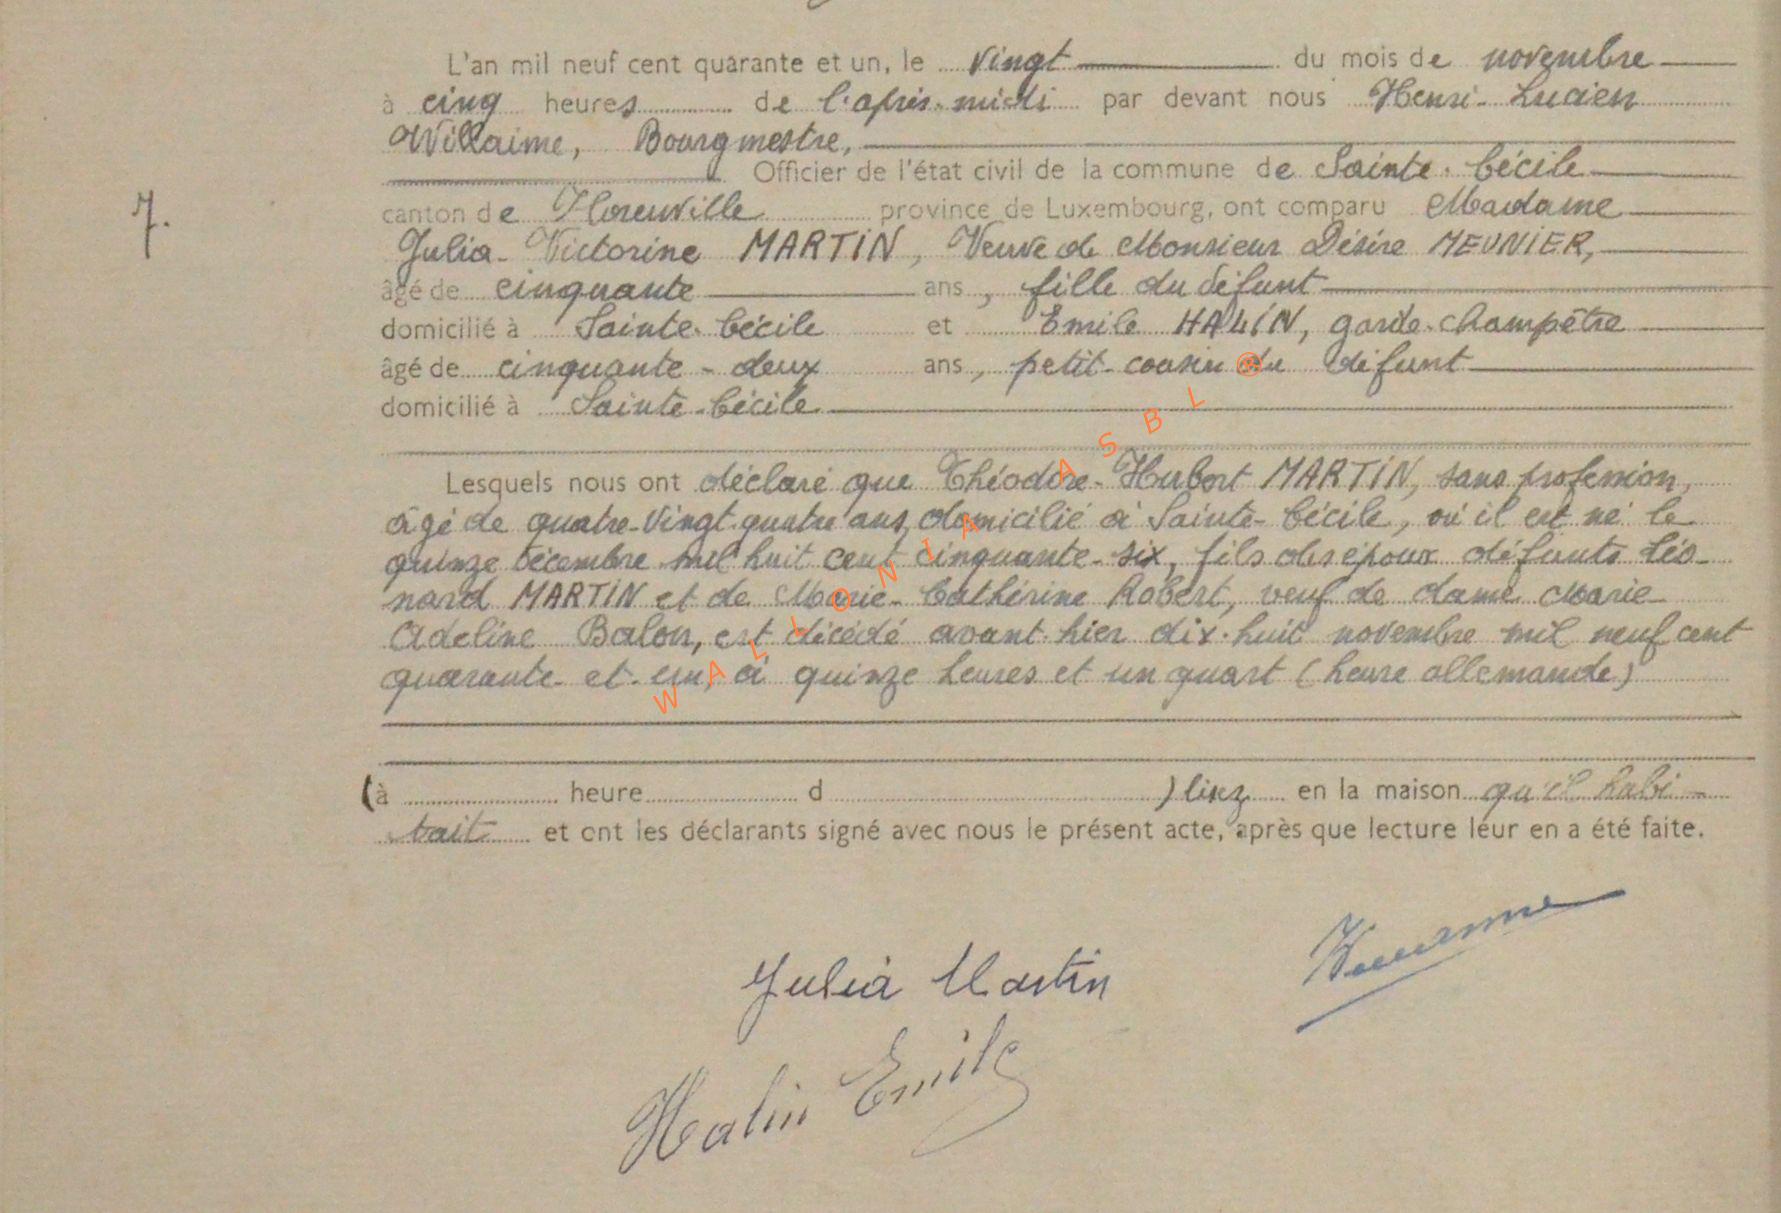 L'an mil neuf cent quarante et un, le vingt du mois de novembre
à cinq heures de l'après-midi par devant nous Henri-Lucien
Willaime, Bourgmestre,
Officier de l'état civil de la commune de Sainte-Cécile
7.
canton de Florenville province de Luxembourg, ont comparu Madame
Julia-Victorine MARTIN, Veuve de Monsieur Désiré MEUNIER,
âgé de cinquante ans, fille du défunt
domicilié à Sainte-Cécile et Emile HALIN, garde-champêtre
âgé de cinquante-deux ans, petit-cousin du défunt
domicilié à Sainte-Cécile
Lesquels nous ont déclaré que Théodore-Hubert MARTIN, sans profession,
âgé de quatre-vingt-quatre ans, domicilié à Sainte-Cécile, où il est né le
quinze décembre mil huit cent cinquante-six, fils des époux défunts Léo-
nard MARTIN et de Marie-Cathérine Robert, veuf de dame Marie
Adeline Balon, est décédé avant-hier dix-huit novembre mil neuf cent
quarante et un, à quinze heures et un quart (heure allemande)
(à heure d ) en la maison qu'il habi-
tait et ont les déclarants signé avec nous le présent acte, après que lecture leur en a été faite.
Julia Martin
Halin Emile
WALLONIA ASBL ®